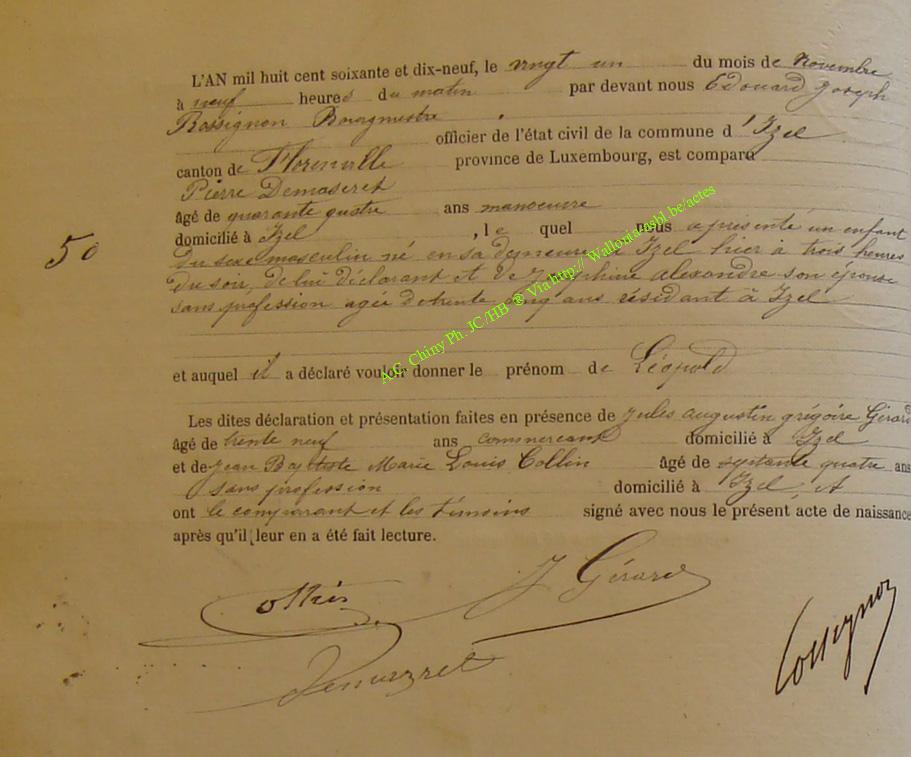 L'AN mil huit cent soixante et dix-neuf, le vingt un du mois de Novembre
à neuf heures du matin par devant nous Edouard Joseph
Rossignon Bourgmestre
officier de l'état civil de la commune d'Izel
canton de Florenville province de Luxembourg, est comparu
Pierre Demazeret
âgé de quarante quatre ans manoeuvre
domicilié à Izel, le quel nous a présenté un enfant
50
Du sexe masculin né en sa demeure à Izel hier à trois heures
du soir, de lui déclarant et de Joséphine Alexandre son épouse
sans profession agée de trente cinq ans résidant à Izel
et auquel il a déclaré vouloir donner le prénom de Léopold
Les dites déclaration et présentation faites en présence de Jules augustin grégoire Gérard
âgé de trente neuf ans commercant domicilié à Izel
et de Jean Baptiste Marie Louis Collin âgé de septante quatre ans
sans profession domicilié à Izel, et
ont le comparant et les témoins signé avec nous le présent acte de naissance
après qu'il leur en a été fait lecture.
Collin J Gérard
Demazeret Rossignon
A.C. Chiny Ph. JC/HB ® Via http:// Wallonia asbl.be/actes